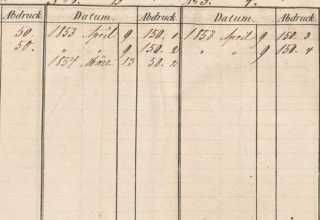 Abdruck. Datum. Abdruck Datum. Abdruck
50. 1853 April 9 150. 1 1853 April 9 150. 3
50. " " 9 150. 2 " " 9 150. 4
1854 März 13 50. 2